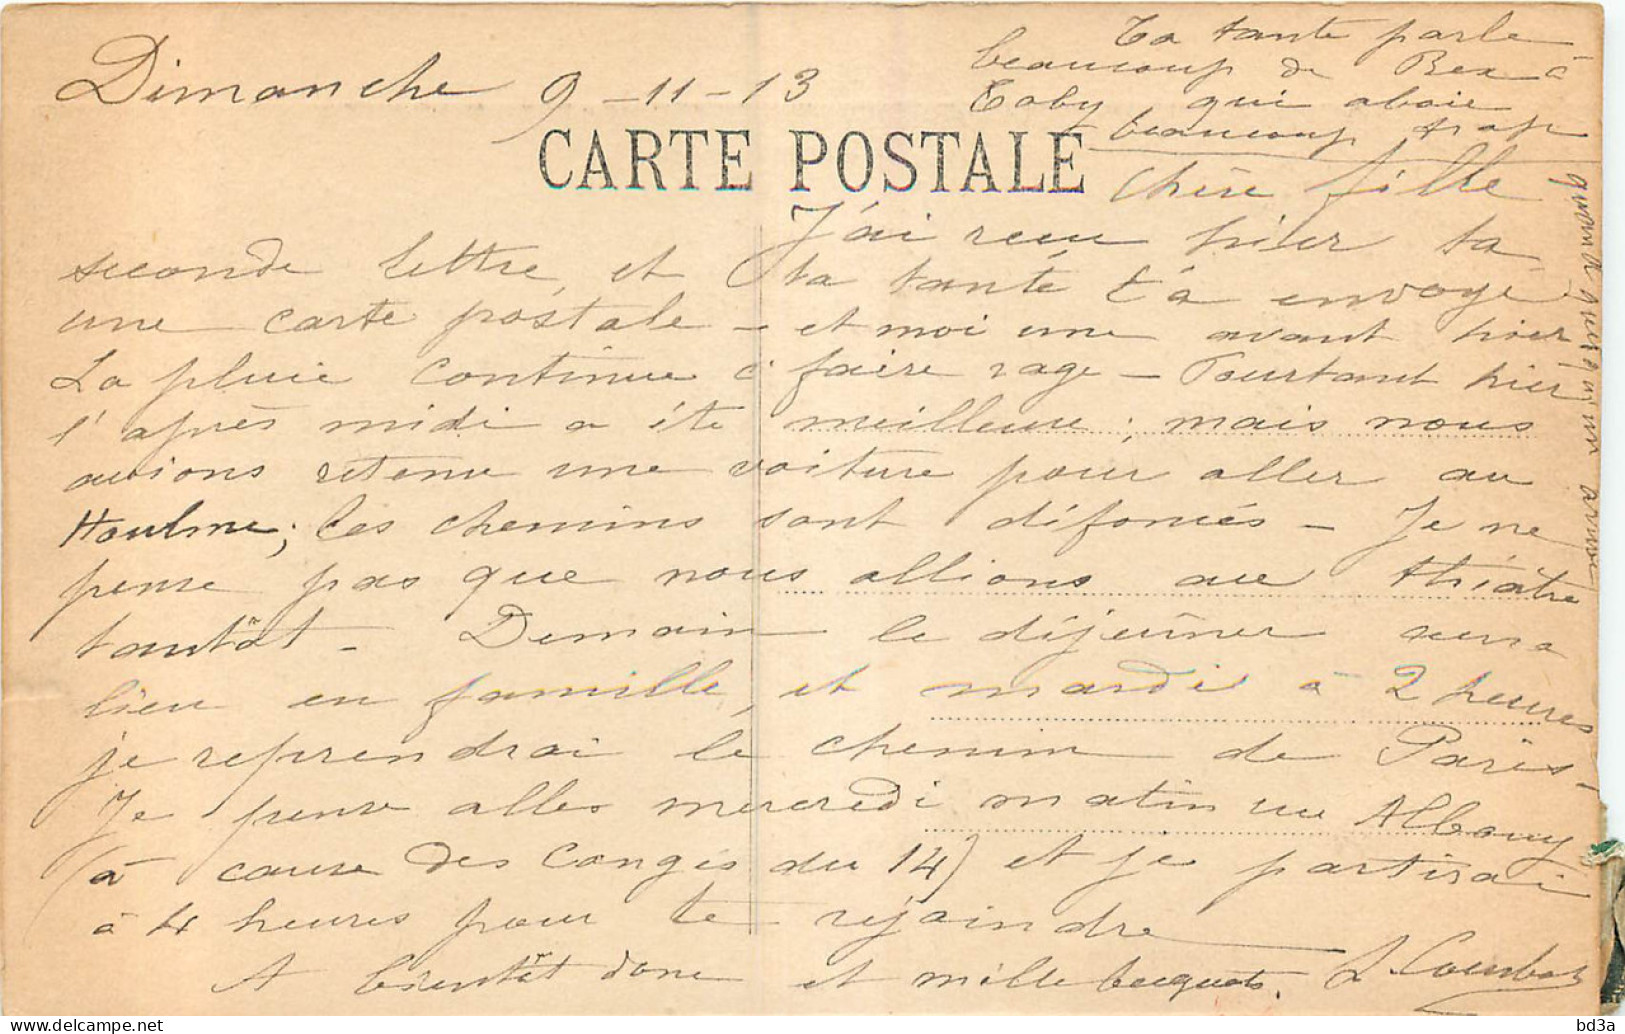 Dimanche 9-11-13
Ta tante parle
beaucoup de Rex à
Toby, qui aboie
beaucoup trop
quand quelqu'un arrive
CARTE POSTALE
Chère fille
J'ai reçu hier ta
seconde lettre, et ta tante t'a envoyé
une carte postale - et moi une avant hier
La pluie continue à faire rage - Pourtant hier
l'après midi a été meilleure; mais nous
avions retenu une voiture pour aller au
Houlme; les chemins sont défoncés - Je ne
pense pas que nous allions au théâtre
tantôt - Demain le déjeûner aura
lieu en famille, et mardi à 2 heures
je reprendrai le chemin de Paris -
Je pense aller mercredi matin au Albouy
(à cause des Congés du 14) et je partirai
à 4 heures pour te rejoindre
A bientôt donc et mille becquots. L Courbot
bd3a